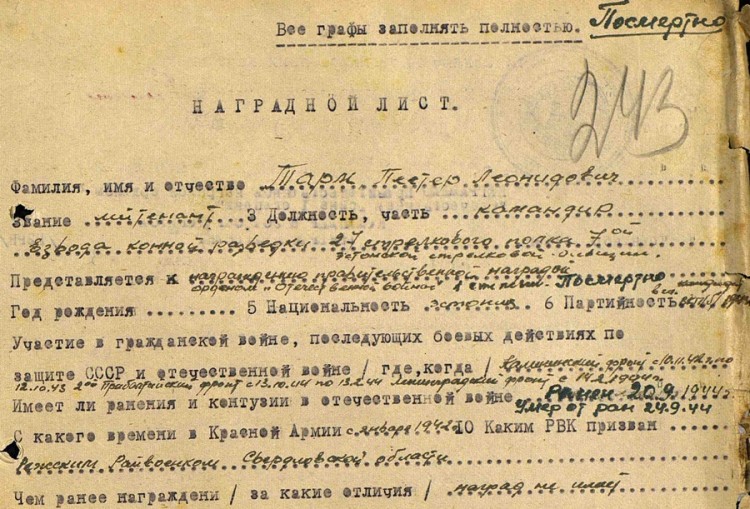 Все графы заполнять полностью. Посмертно
243
НАГРАДНОЙ ЛИСТ.
Фамилия, имя и отчество Тарм Пеетер Леонидович
Звание лейтенант 3 Должность, часть командир
взвода конной разведки 27 стрелкового полка 7ой
эстонской стрелковой дивизии.
Представляется к награждению правительственной наградой
орденом "Отечественной войны" 1 степени. Посмертно
Год рождения ......... 5 Национальность эстонец 6 Партийность кандидат
Участие в гражданской войне, последующих боевых действиях по
защите СССР и отечественной войне / где, когда / Калининский фронт с 10.11.42 г. по
12.10.43 2ой Прибалтийский фронт с 13.10.44 по 13.2.44 Ленинградский фронт с 14.2.1944
Имеет ли ранения и контузии в отечественной войне Ранен 20.9.1944г.
Умер от ран 24.9.44
С какого времени в Красной Армии с января 1942 10 Каким РВК призван
Режским Райвоенком Свердловской области
Чем ранее награждени / за какие отличия / наград не имел